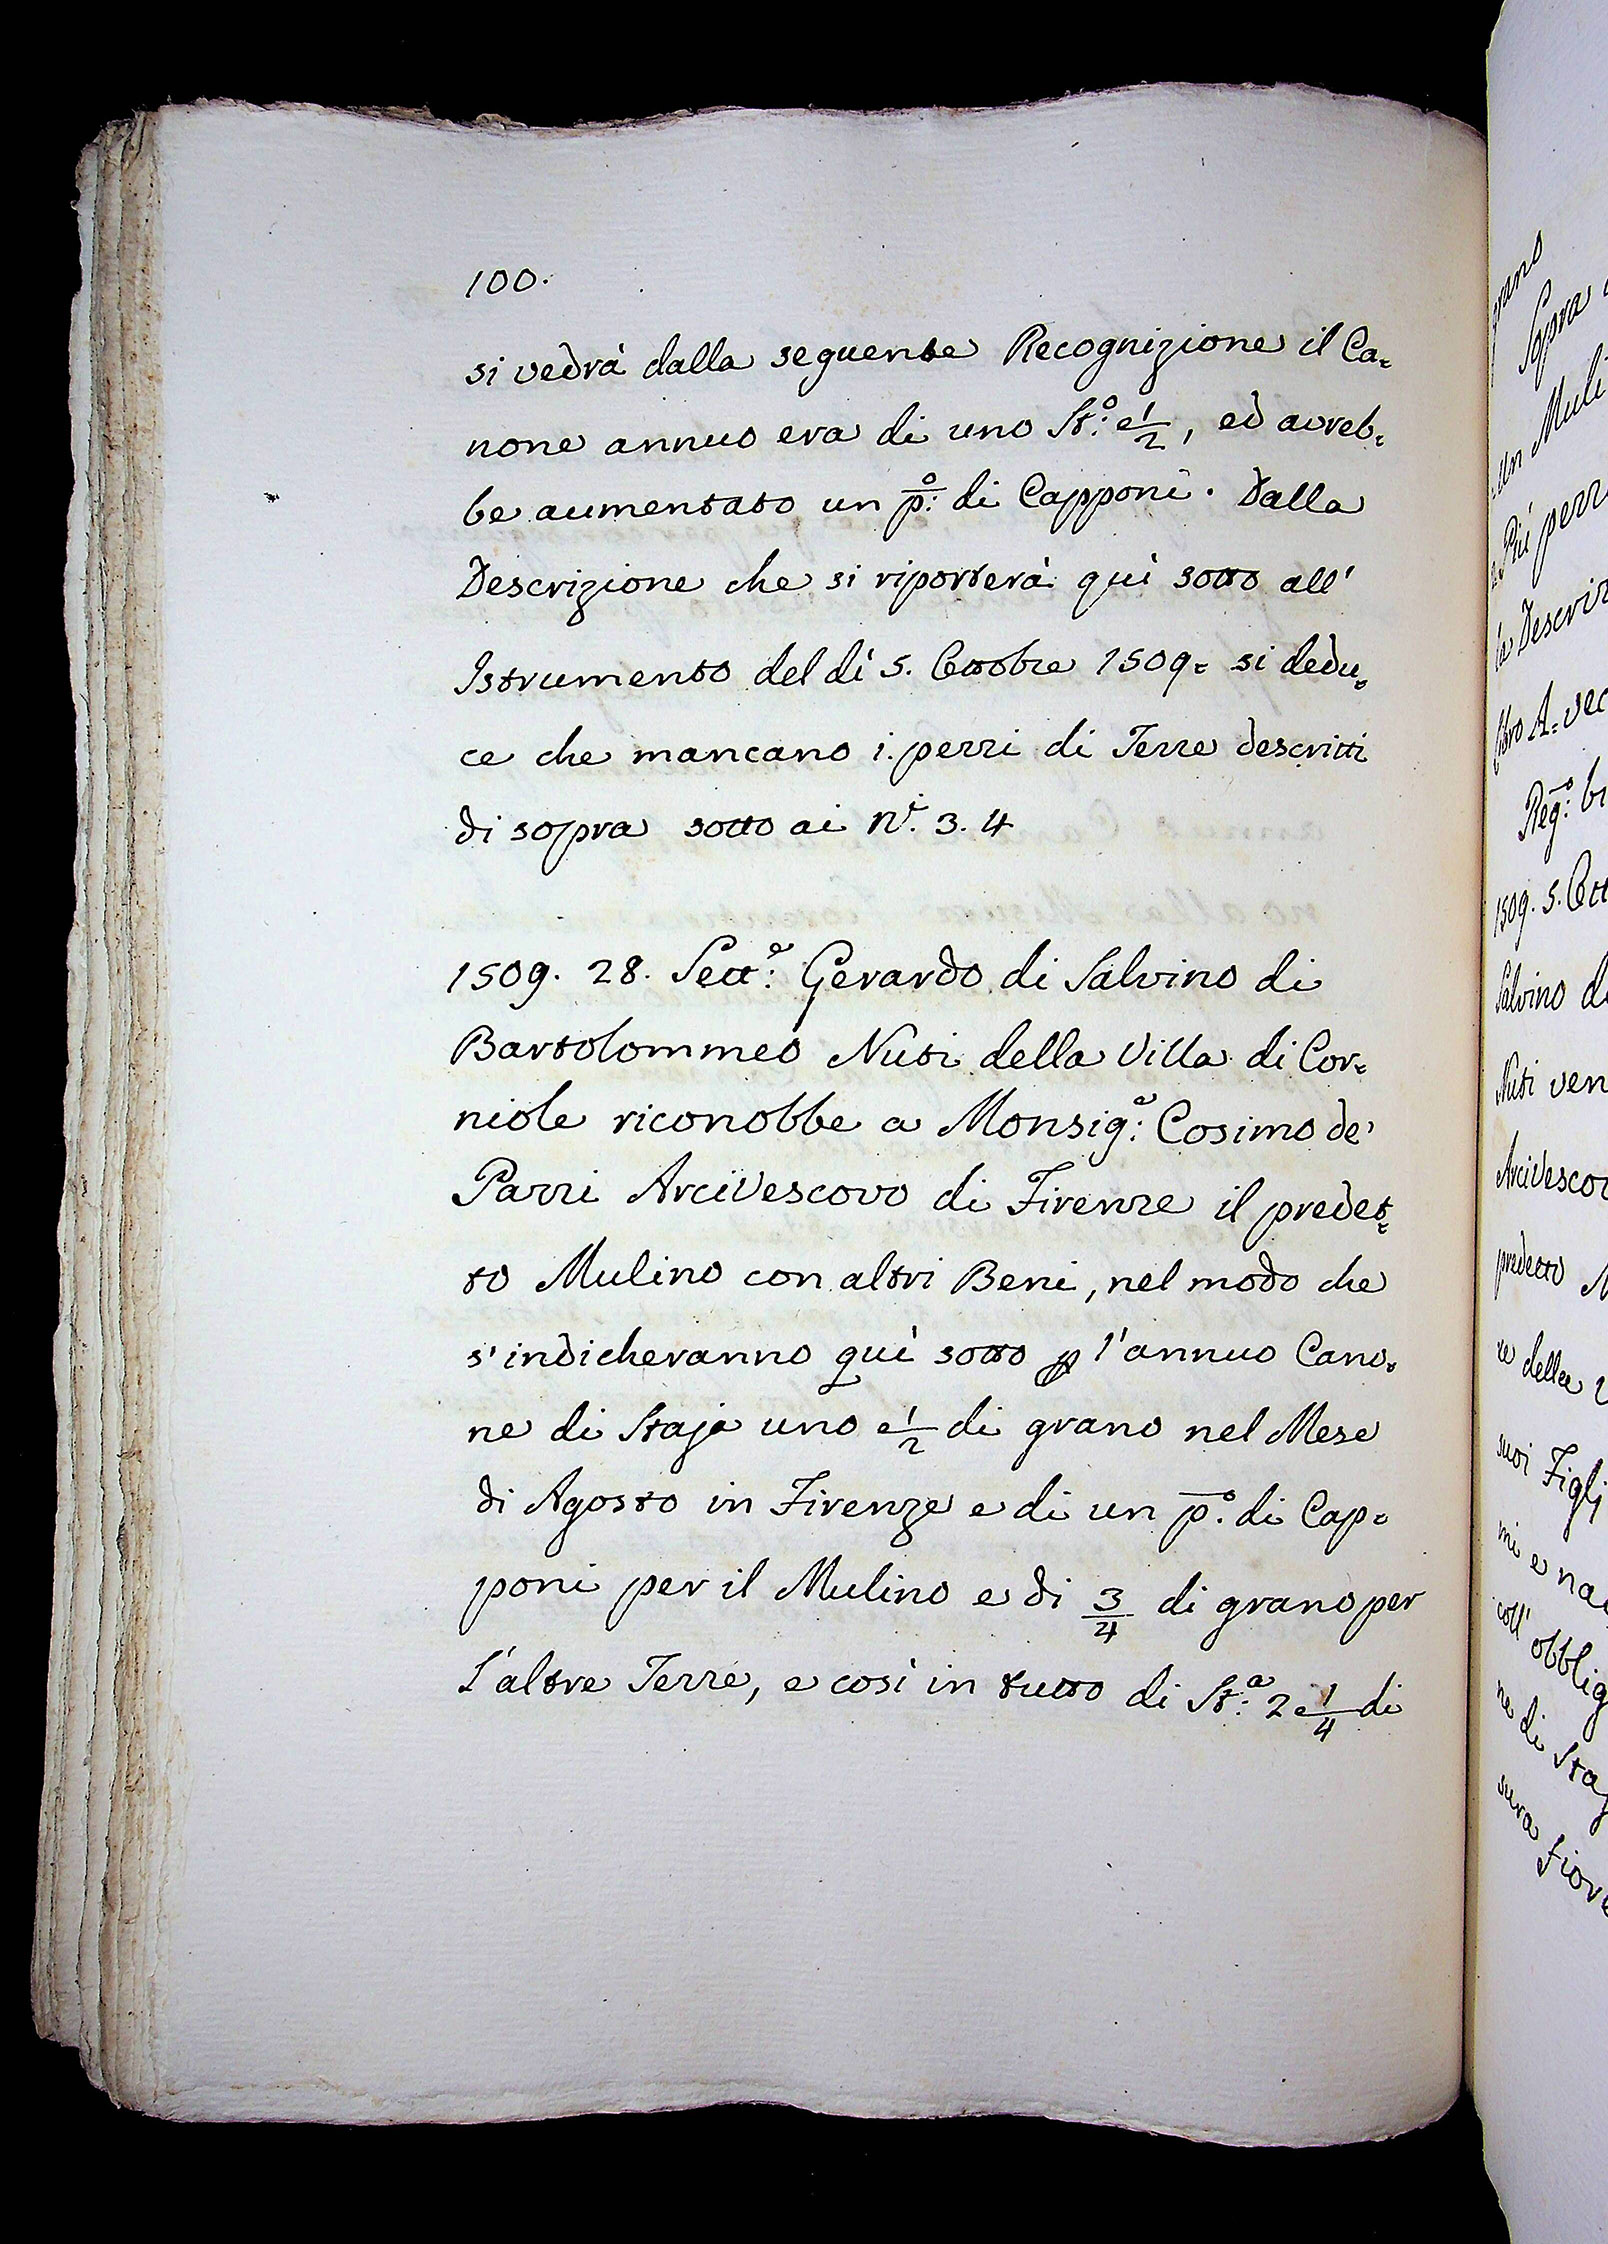 100.
si vedrà dalla seguente Recognizione il Ca=
none annuo era di uno St:º e 1/2, ed avreb=
be aumentato un p:º di Capponi. Dalla
Descrizione che si riporterà quì sotto all'
Istrumento del dì 5. Ottobre 1509. si dedu=
ce che mancano i pezzi di Terre descritti
di sopra sotto ai N.i 3. 4
1509. 28. Sett:e Gerardo di Salvino di
Bartolommeo Nuti della Villa di Cor=
niole riconobbe a Monsig:e Cosimo de'
Pazzi Arcivescovo di Firenze il predet=
to Mulino con altri Beni, nel modo che
s'indicheranno quì sotto p l'annuo Cano=
ne di Staja uno e 1/2 di grano nel Mese
di Agosto in Firenze e di un p.º di Cap=
poni per il Mulino e di 3/4 di grano per
l'altre Terre, e così in tutto di St:a 2 e 1/4 di
grano
Sopra
Un Muli
Più pezz
la Descriz
libro A. vec
Reg:º bi
1509. 5. Ott
Salvino d
Nuti ven
Arcivescov
predetto M
re della V
suoi Figli
mi e na
coll' obblig
ne di Staj
sura Fiore